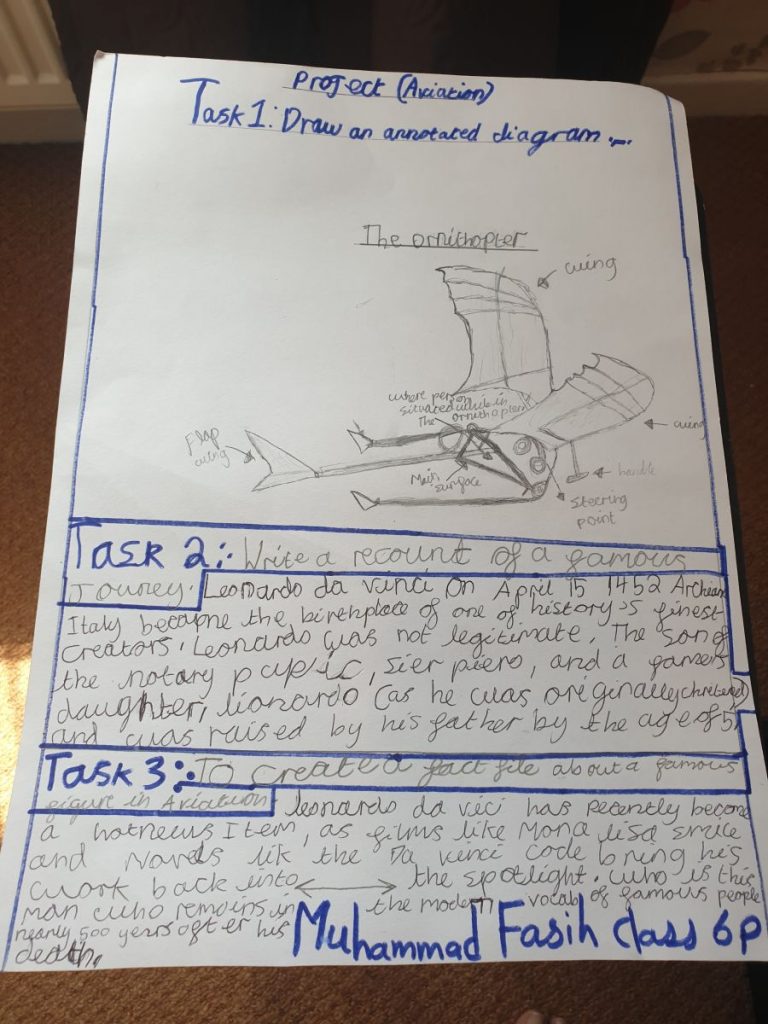 Project (Aviation)
Task 1: Draw an annotated diagram...
The ornithopter
wing
where person
situated while in
The ornithopter
wing
Flap
wing
Main
surface
handle
Steering
point
Task 2: Write a recount of a famous
Jouney. Leonardo da vinci on April 15 1452
Italy became the birthplace of one of history's finest
creators. Leonardo was not legitimate. The son of
the notary pupic, sier piero, and a
daughter, lionardo (as he was originally
and was raised by his father by the age of 5)
Task 3: To create a fact file about a famous
figure in Aviation. leonardo da vici has recently become
a hotnews Item, as films like Mona lisa smile
and Novels lik the Da vinci code bring his
work back into the spotlight. who is this
man who remains in the modern vocab of famous people
nearly 500 years after his
death.
Muhammad Fasih class 6P